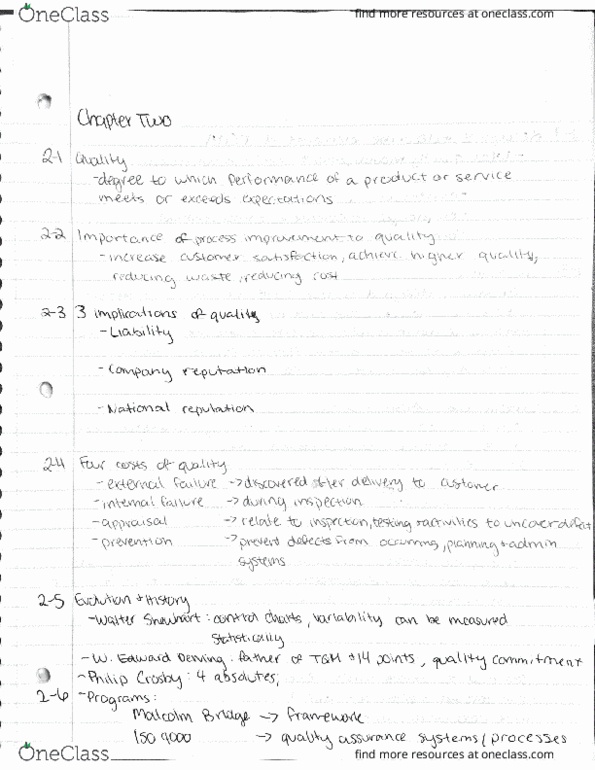 OneClass find more resources at oneclass.com
Chapter Two
2-1 Quality
-degree to which performance of a product or service
meets or exceeds expectations
2-2 Importance of process improvement to quality
-increase customer satisfaction, achieve higher quality,
reducing waste, reducing cost
2-3 3 implications of quality
-Liability
-Company reputation
-National reputation
2-4 Four costs of quality
-external failure -> discovered after delivery to customer
-internal failure -> during inspection
-appraisal -> relate to inspection, testing + activities to uncover defect
-prevention -> prevent defects from occurring, planning + admin
systems
2-5 Evolution + History
-Walter Shewhart: control charts, variability can be measured
statistically
-W. Edward Deming: father of TQM + 14 points, quality commitment
-Philip Crosby: 4 absolutes,
2-6 -Programs:
Malcolm Bridge -> framework
ISO 9000 -> quality assurance systems/processes
OneClass find more resources at oneclass.com